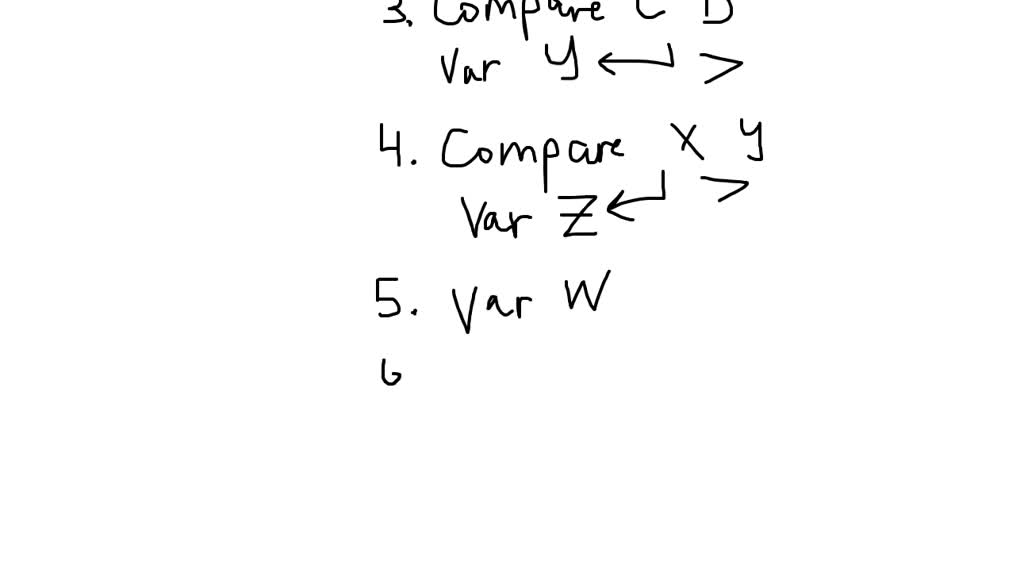 3. Compare C D
Var Y ← >
4. Compare X Y
Var Z ← >
5. Var W
6